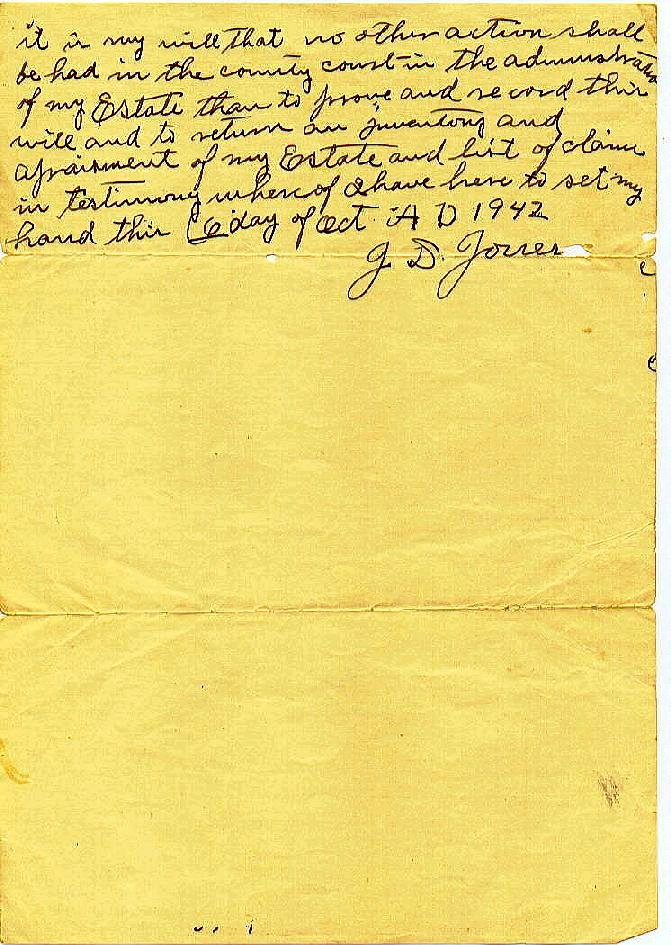 it is my will that no other action shall
be had in the county court in the administration
of my Estate than to prove and record this
will and to return an inventory and
apraisment of my Estate and list of claims
in testimony whereof I have here to set my
hand this 6 day of Oct. A D 1942
J. D. Jones